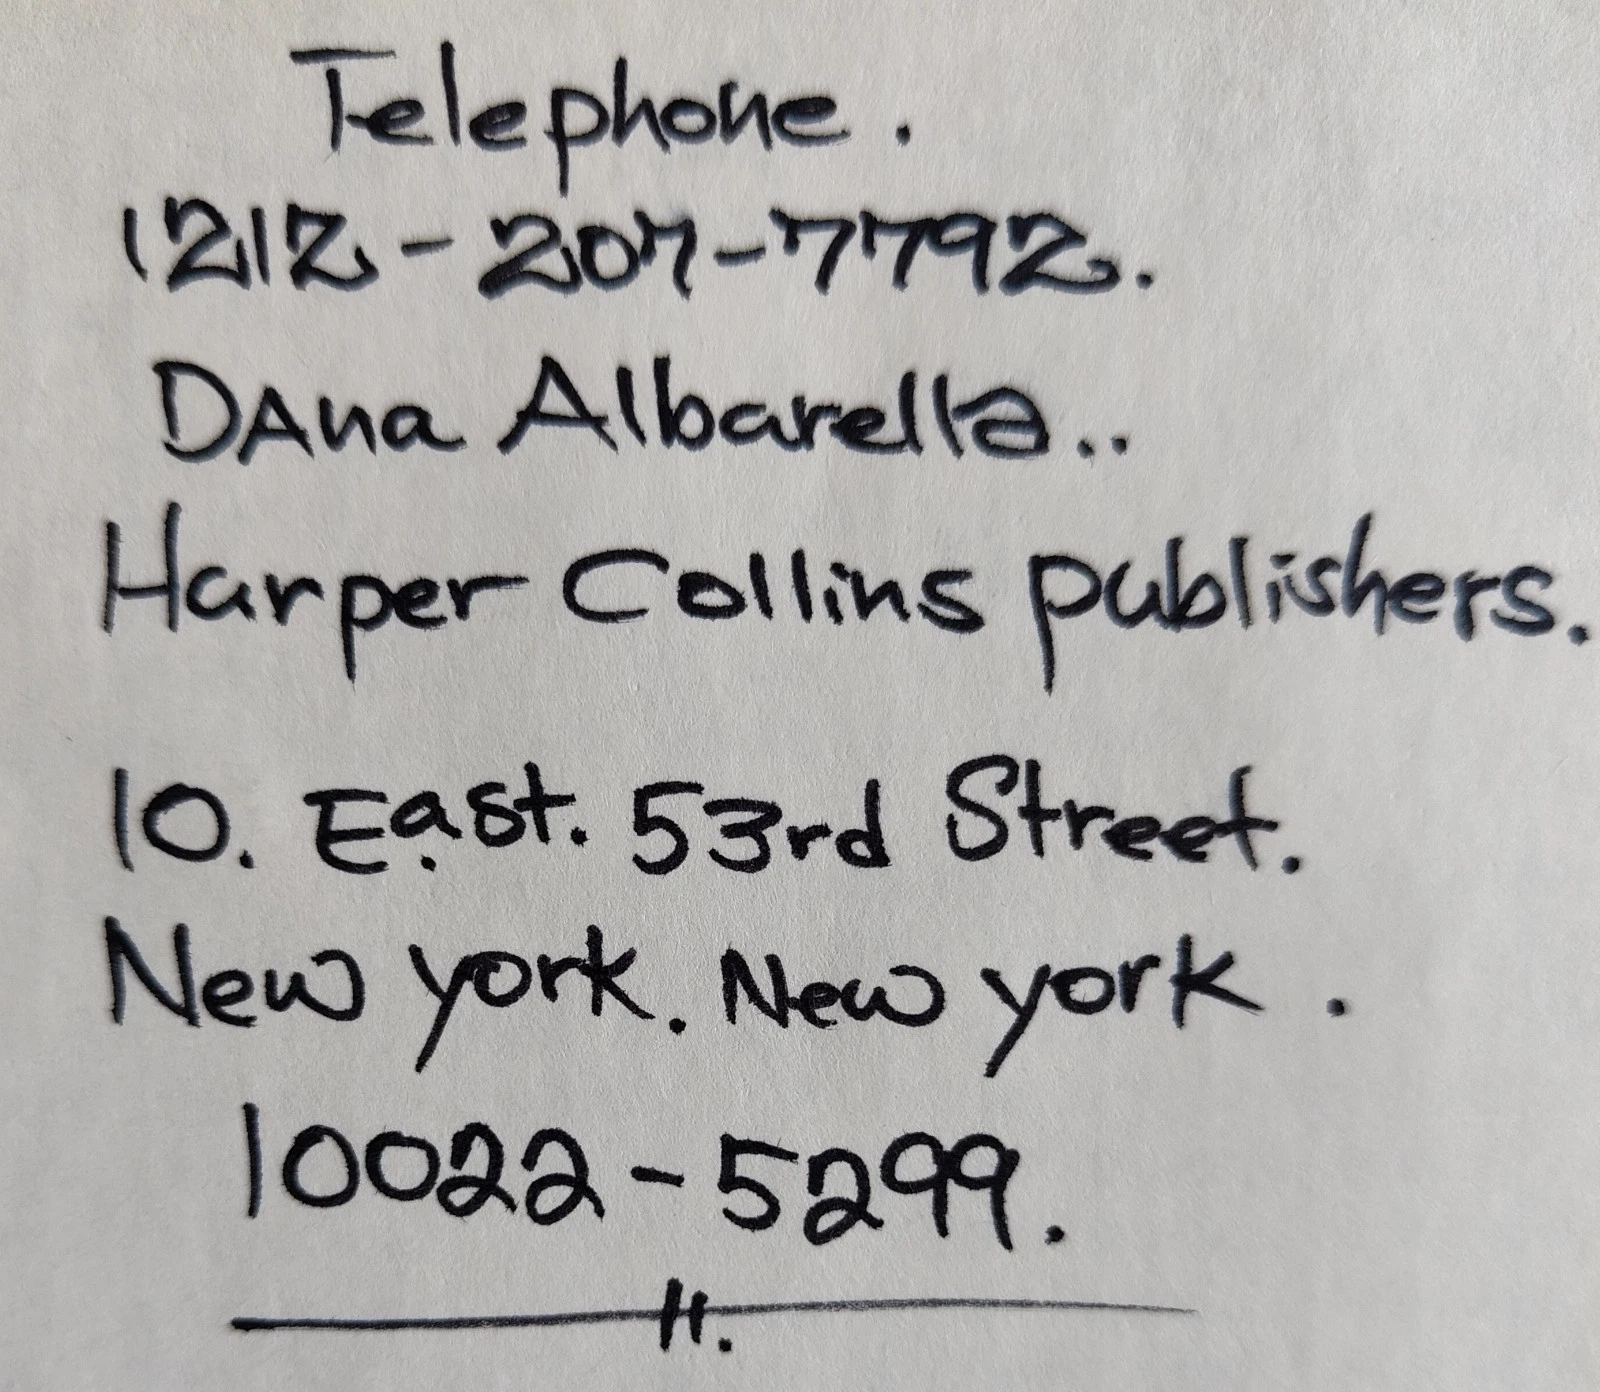 Telephone.
1212-207-7792.
DAna Albarella..
Harper Collins publishers.
10. East. 53rd Street.
New york. New york.
10022-5299.
11.